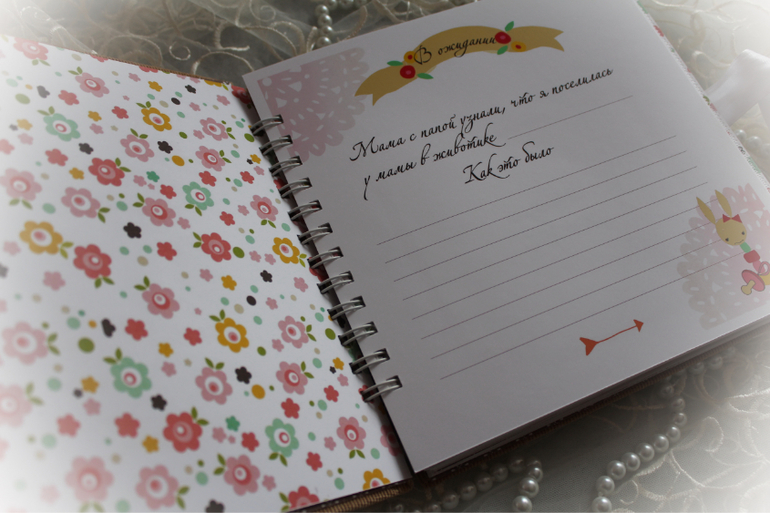 В ожидании
Мама с папой узнали, что я поселилась
у мамы в животике
Как это было